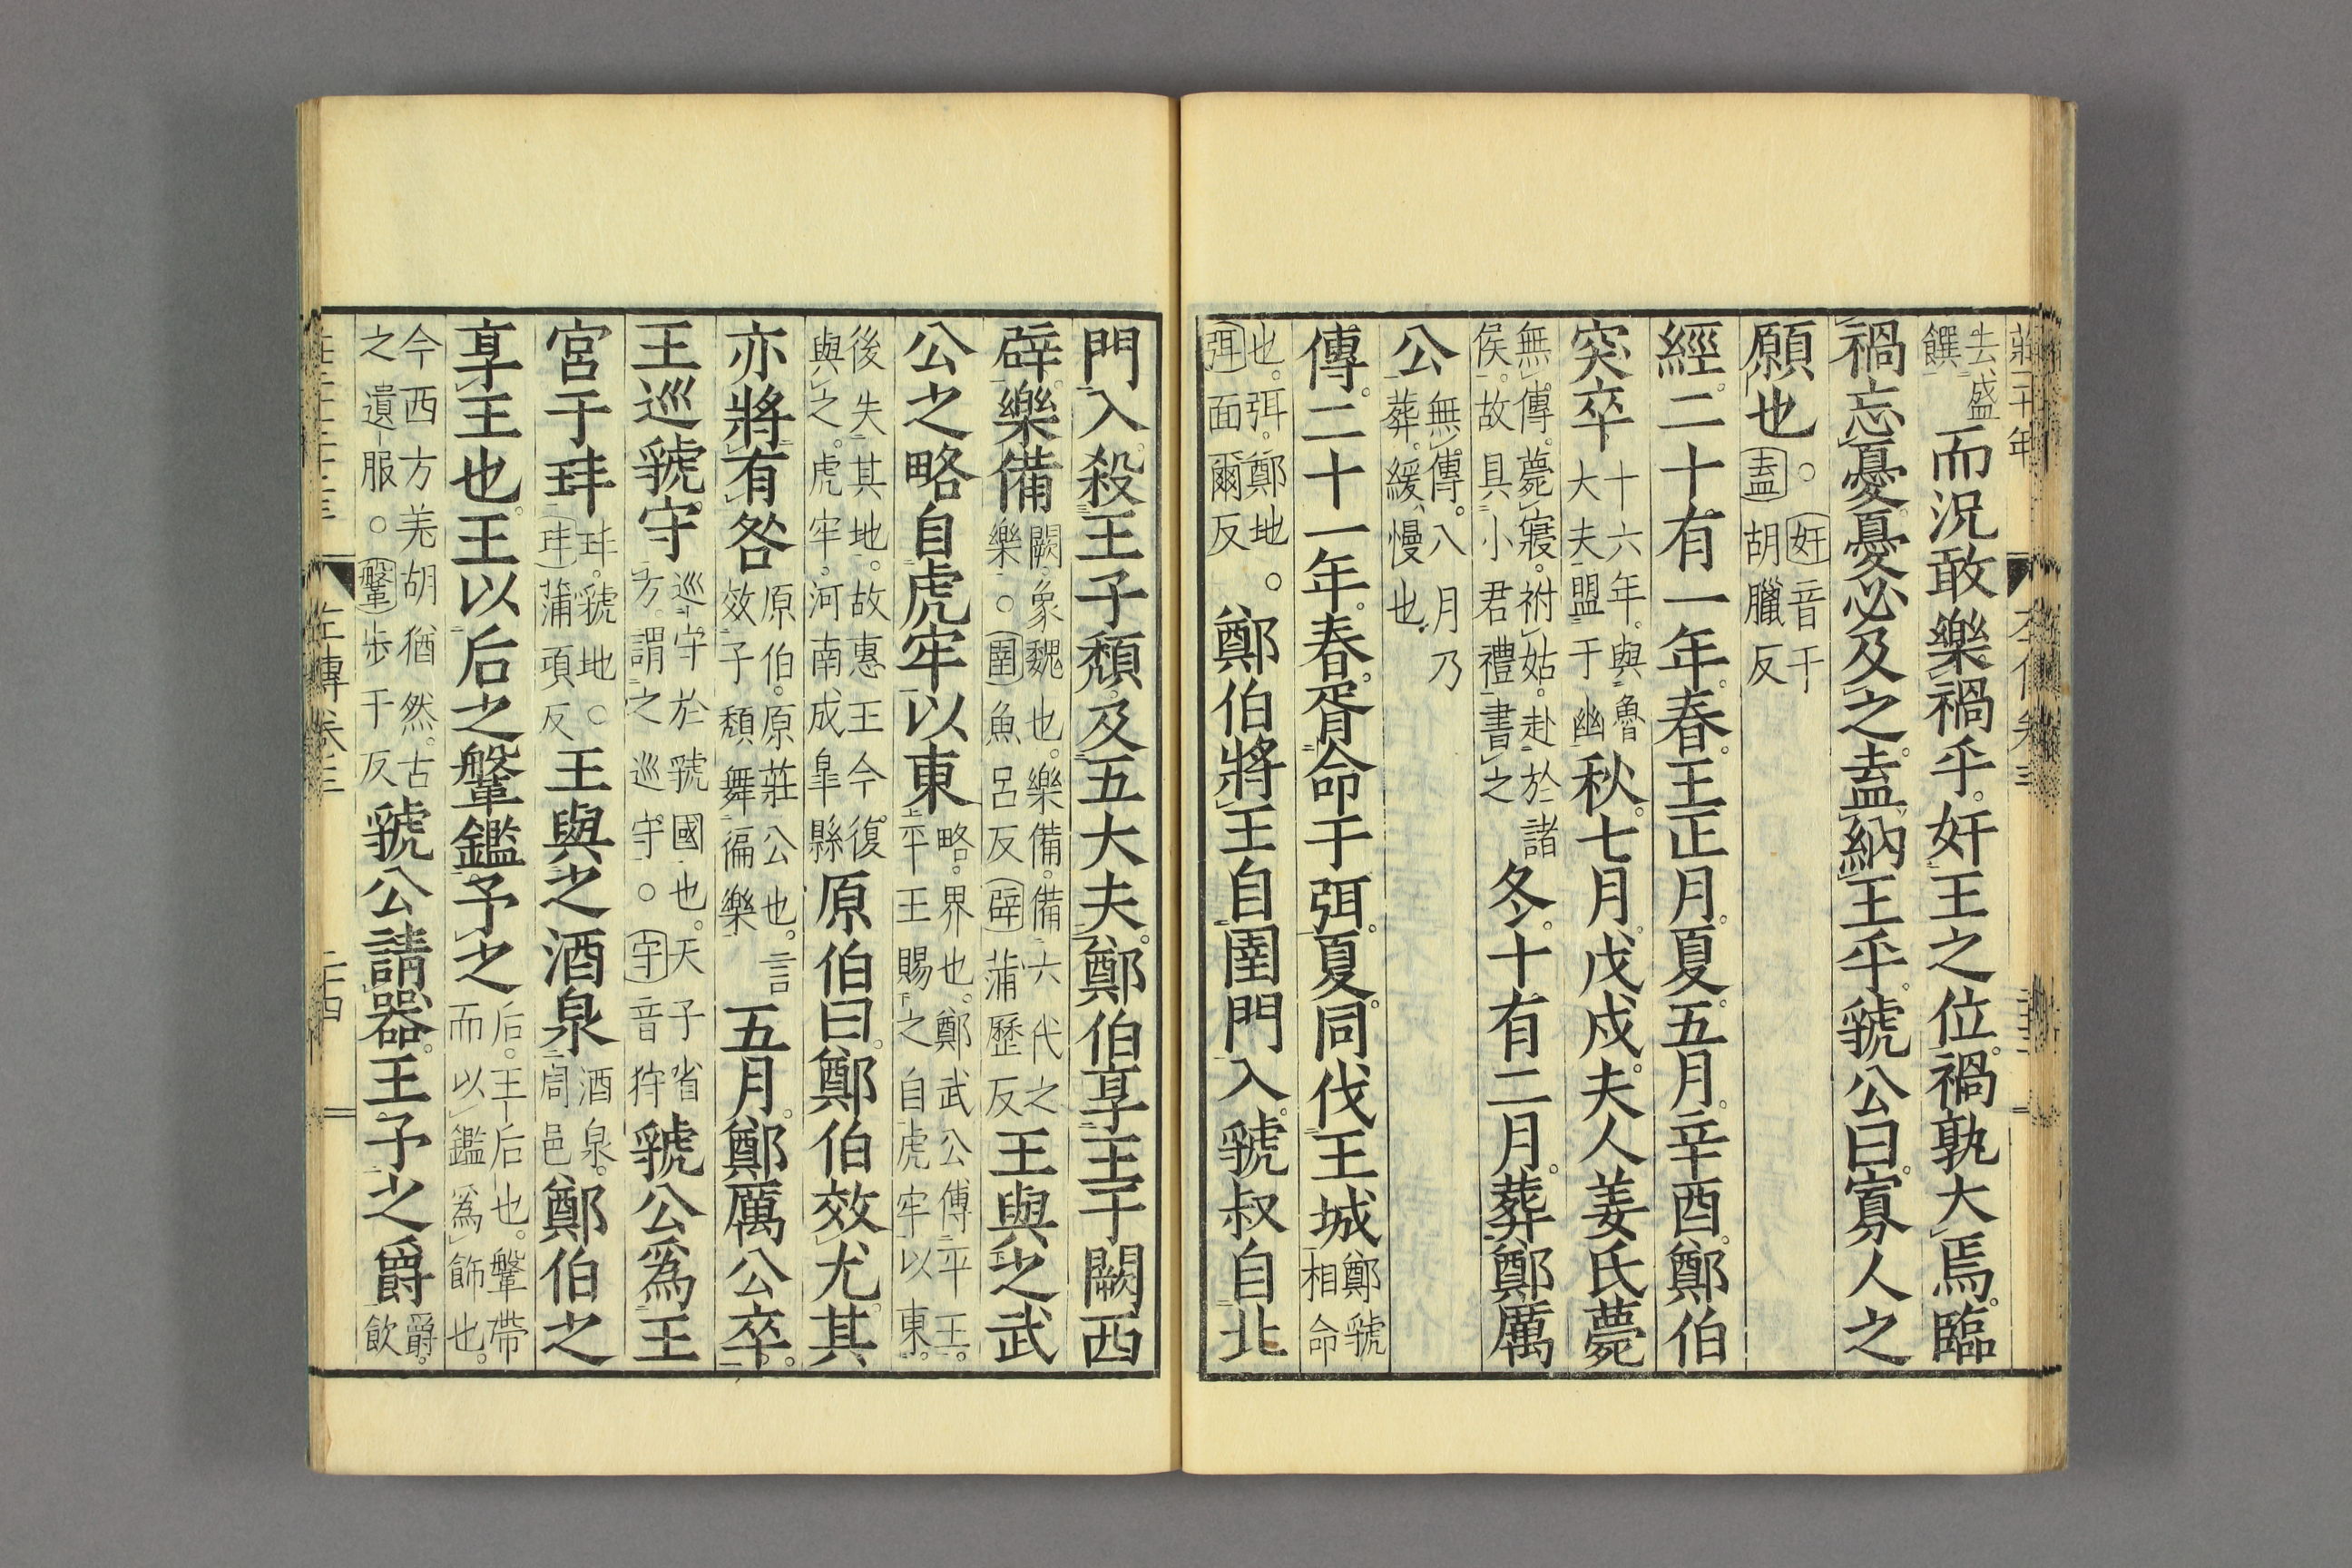 莊二十年
去盛饌而況敢樂禍乎奸王之位禍孰大焉臨
禍忘憂憂必及之盍納王乎虢公曰寡人之
願也。奸音干盍胡臘反
經二十有一年春王正月夏五月辛酉鄭伯
突卒十六年與魯大夫盟于幽秋七月戊戌夫人姜氏薨
無傳薨寢祔姑赴於諸侯故具小君禮書之冬十有二月葬鄭厲
公無傳八月乃葬緩慢也
傳二十一年春胥命于弭夏同伐王城鄭虢相命
也弭鄭地。弭面爾反鄭伯將王自圉門入虢叔自北
門入殺王子頹及五大夫鄭伯享王于闕西
辟樂備闕象魏也樂備備六代之樂。圉魚呂反辟蒲歷反王與之武
公之略自虎牢以東略界也鄭武公傅平王平王賜之自虎牢以東
後失其地故惠王今復與之虎牢河南成皐縣原伯曰鄭伯效尤其
亦將有咎原伯原莊公也言效子頹舞徧樂五月鄭厲公卒
王巡虢守巡守於虢國也天子省方謂之巡守。守音狩虢公爲王
宮于玤玤虢地。玤蒲項反王與之酒泉酒泉周邑鄭伯之
享王也王以后之鞶鑑予之后王后也鞶帶而以鑑爲飾也
今西方羌胡猶然古之遺服。鞶步干反虢公請器王予之爵爵飲
左傳卷三
二十四